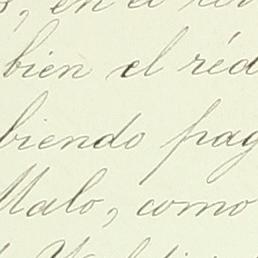 , en el
bien el réd
biendo pag
Malo, como